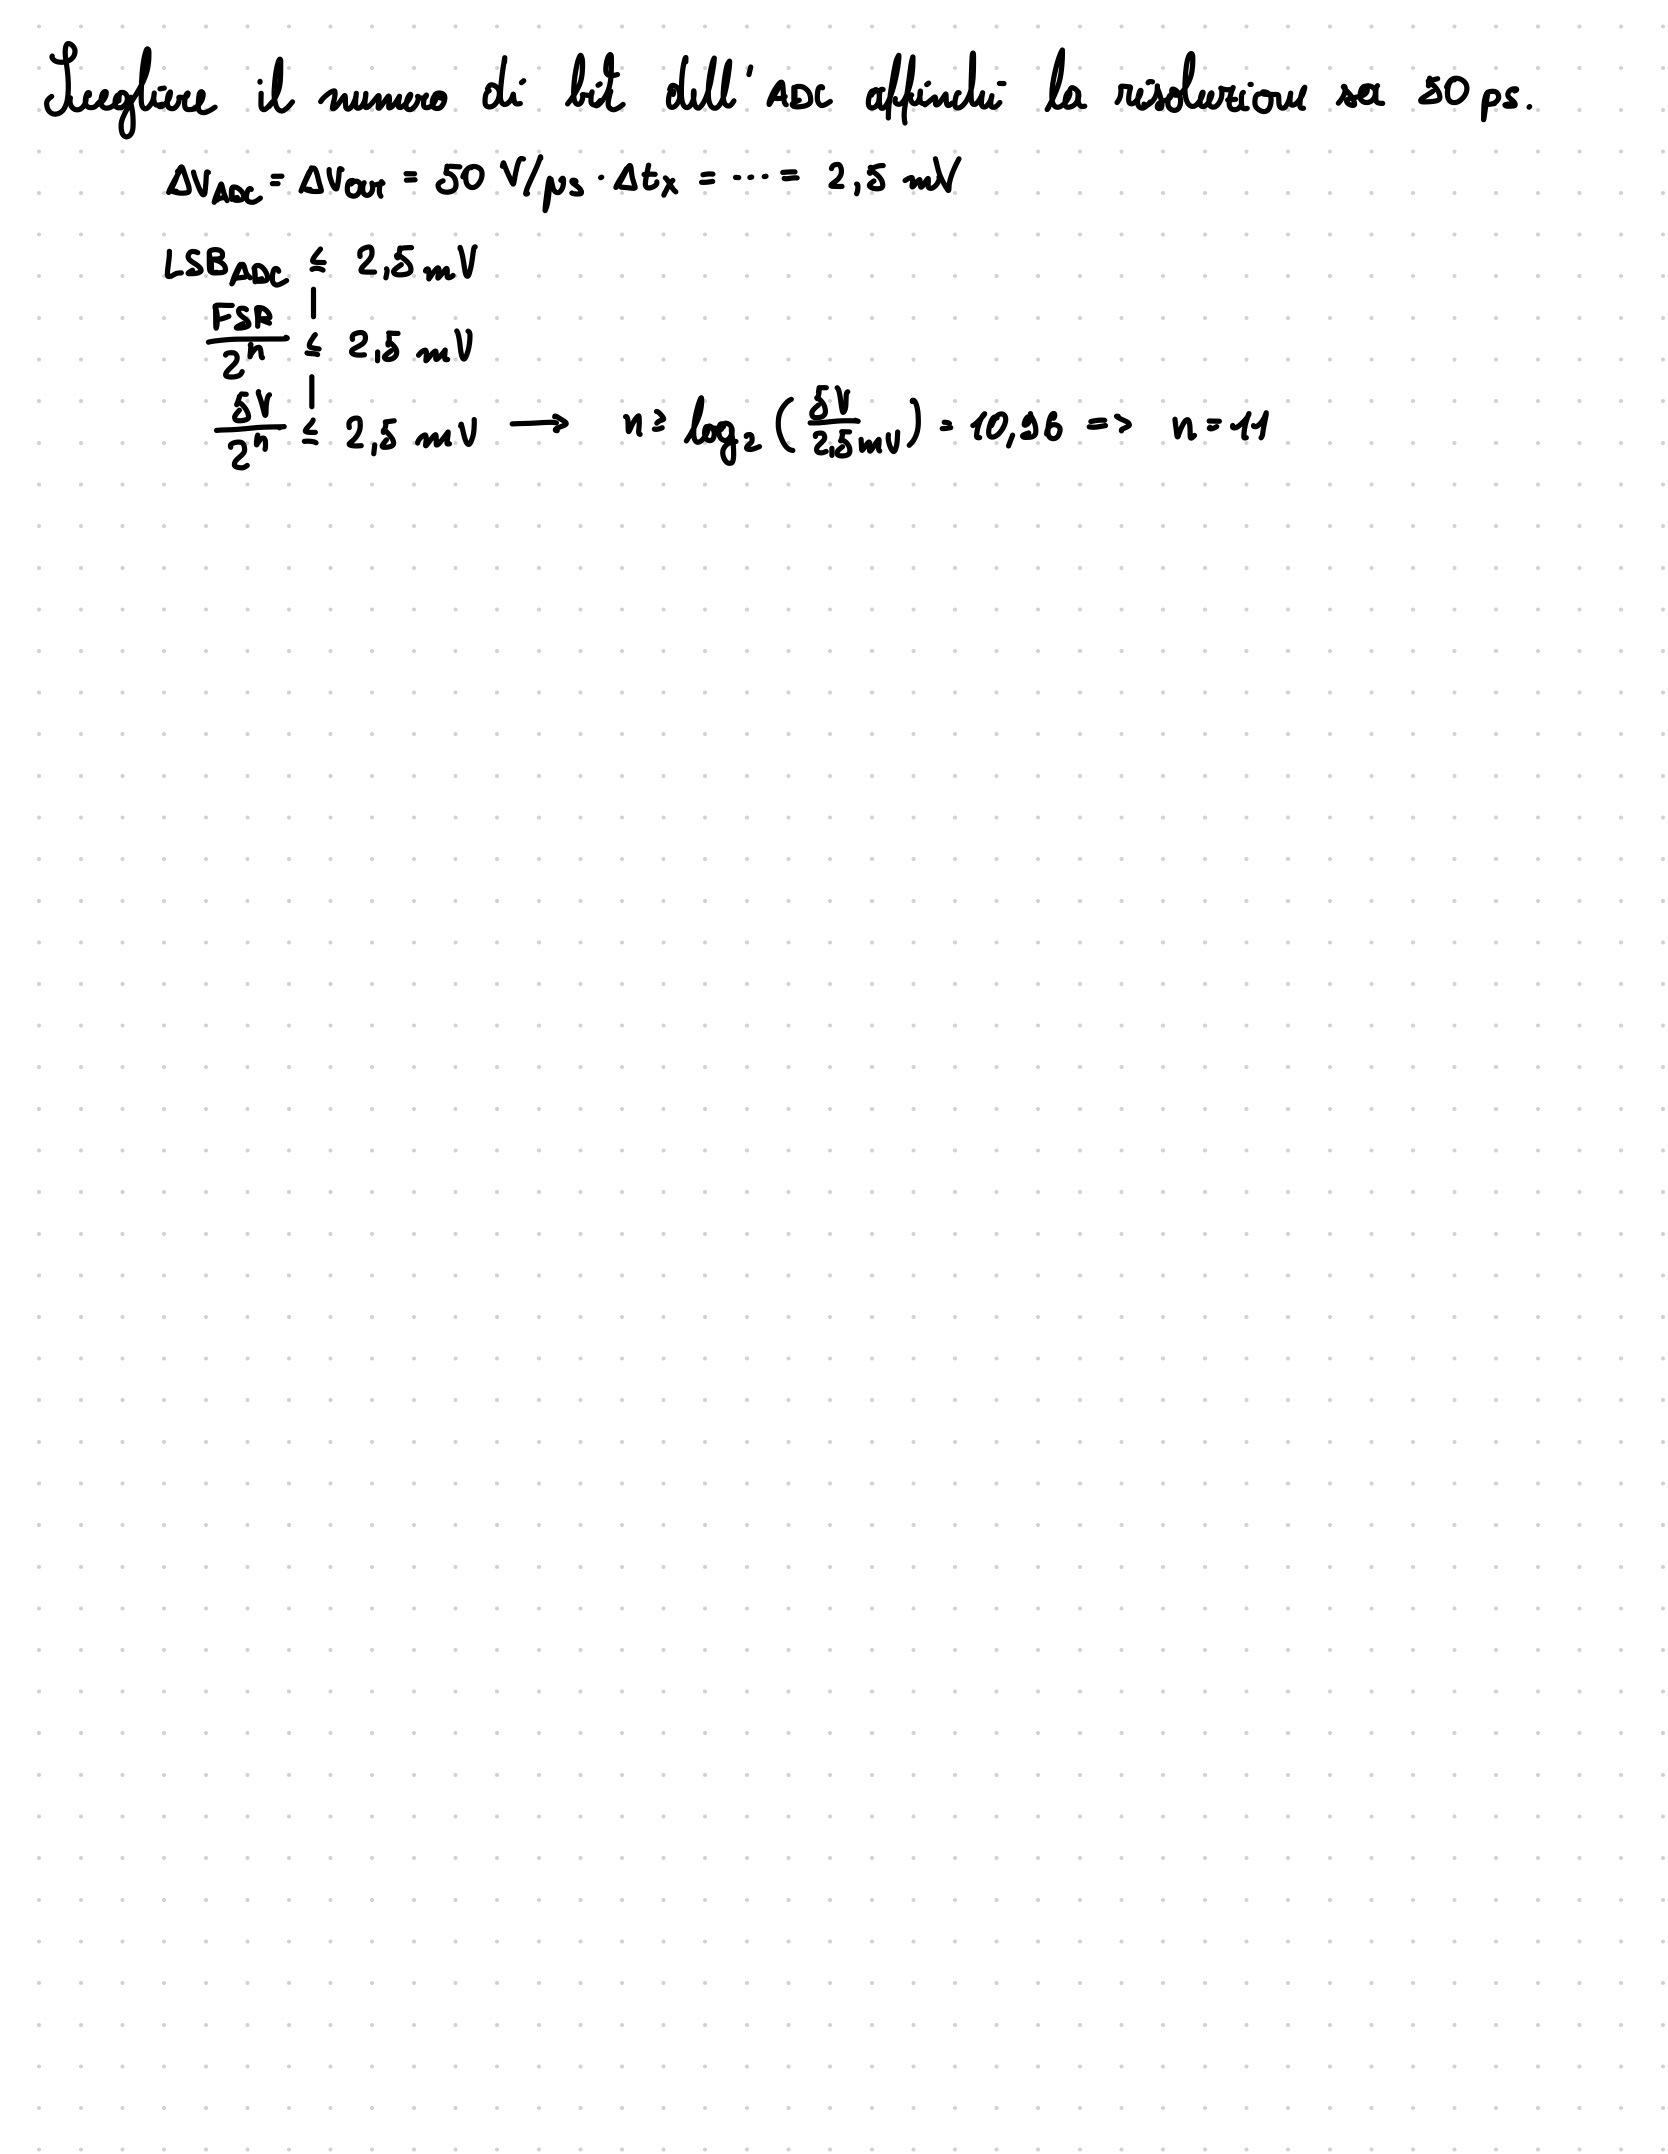 Scegliere il numero di bit dell'ADC affinché la risoluzione sia 50 ps.
ΔV_ADC = ΔV_OUT = 50 V/μs · Δt_x = ··· = 2,5 mV
LSB_ADC ≤ 2,5 mV
FSR/2^n ≤ 2,5 mV
5V/2^n ≤ 2,5 mV → n ≥ log_2 (5V/2,5mV) = 10,96 => n = 11